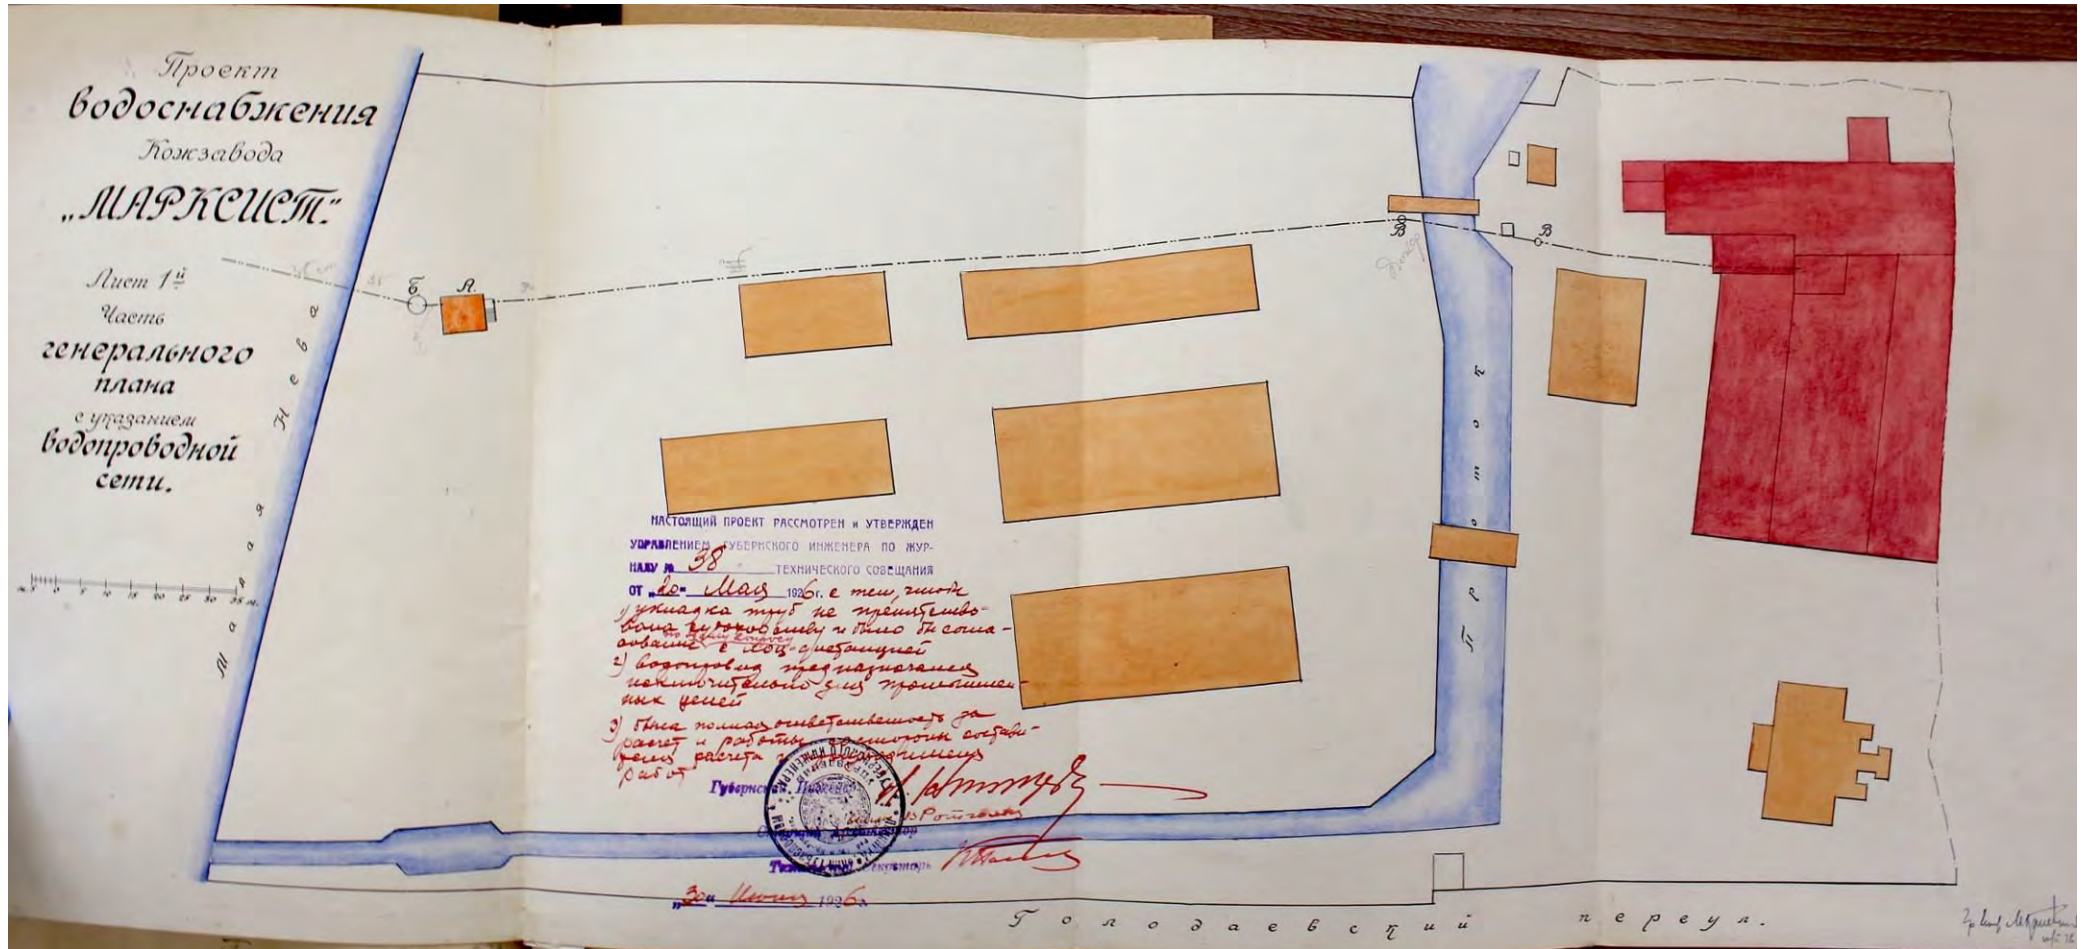 Проект
водоснабжения
Кожзавода
„МАРКСИСТ."
Лист 1й
Часть
генерального
плана
с указанием
водопроводной
сети.
Малая Нева
м. 5 0 5 10 15 20 25 30 35 м.
Б
А.
В
В
Проток
НАСТОЯЩИЙ ПРОЕКТ РАССМОТРЕН и УТВЕРЖДЕН
УПРАВЛЕНИЕМ ГУБЕРНСКОГО ИНЖЕНЕРА ПО ЖУР-
НАЛУ № 38 ТЕХНИЧЕСКОГО СОВЕЩАНИЯ
ОТ „20" Мая 1926г. с тем, чтобы
1) укладка труб не препятство-
вала судоходству и было бы согла-
сование по этому вопросу с
2) водопровод предназначался
исключительно для промышлен-
ных целей
3) была полная ответственность за
расчет и работы состави-
теля расчета и
работ
Губернск. Инженер
Технический Секретарь
„30" Июня 1926г.
Голодаевский переул.